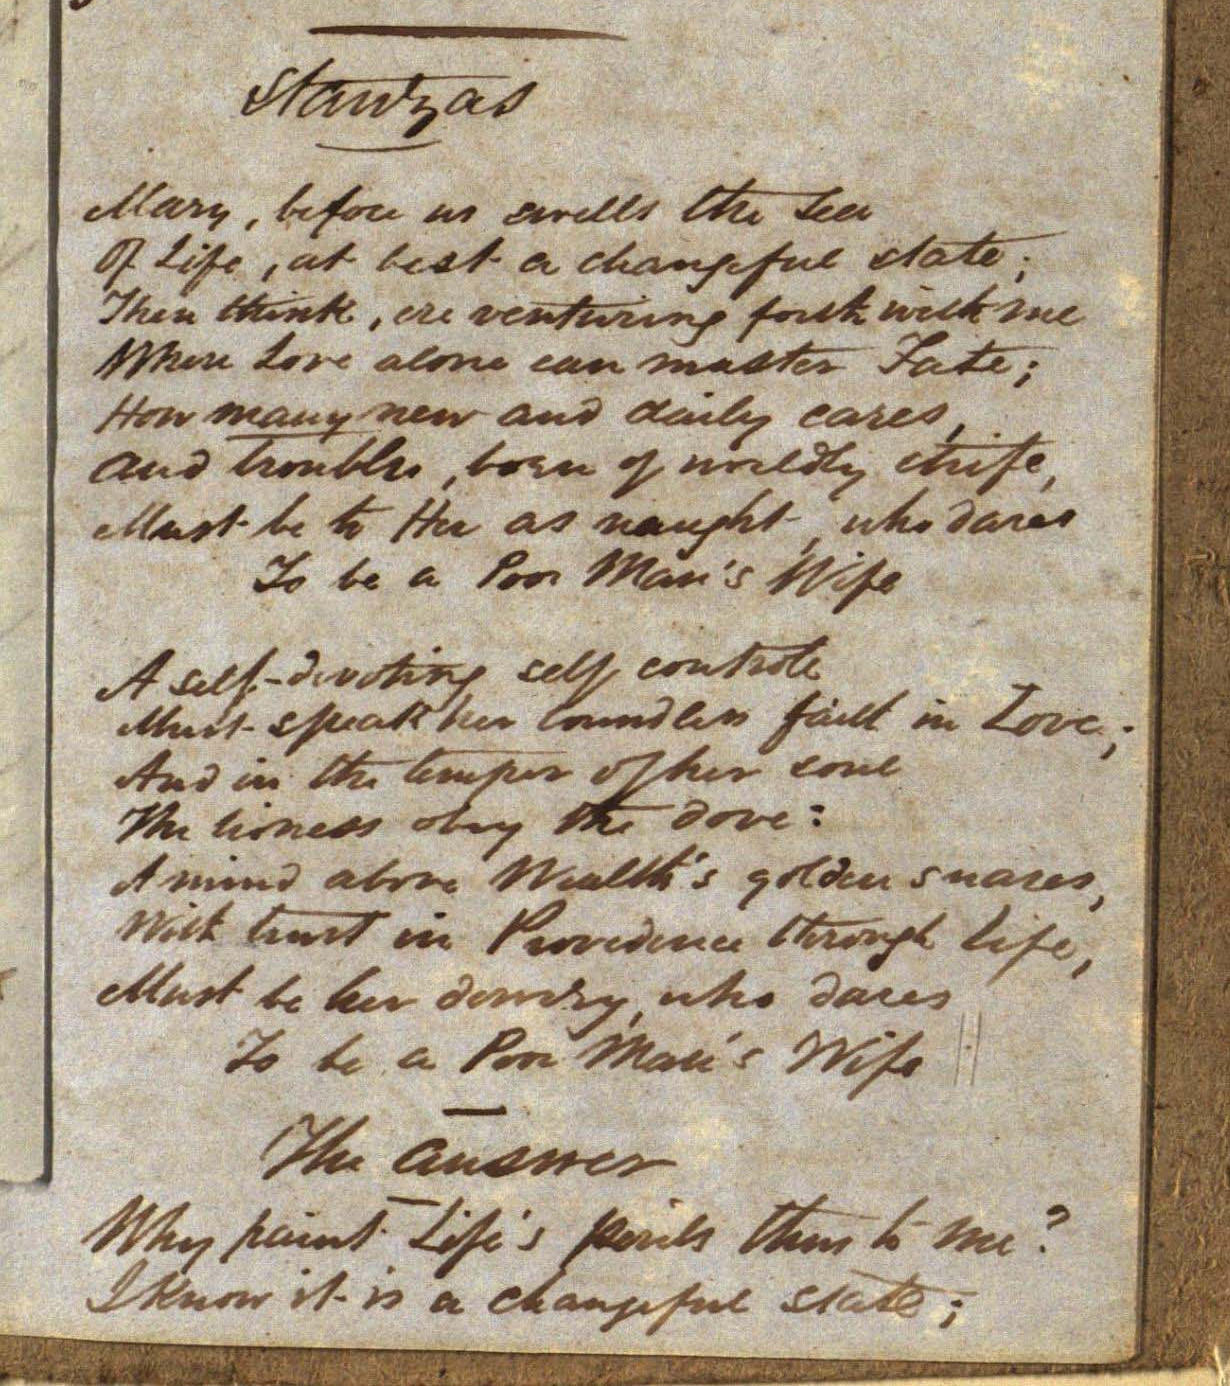 Stanzas
Mary, before us swells the Sea
Of Life, at best a changeful state;
Then think, ere venturing forth with me
Where Love alone can master Fate;
How many new and daily cares,
And troubles, born of worldly strife,
Must be to Her as naught, who dares
To be a Poor Man's Wife
A self-devoting self controle
Must speak her boundless faith in Love;
And in the temper of her soul
The lioness obey the dove:
A mind above Wealth's golden snares,
With trust in Providence through life,
Must be her dowry, who dares
To be a Poor Man's Wife
The Answer
Why paint Life's perils thus to me?
I know it is a changeful state;